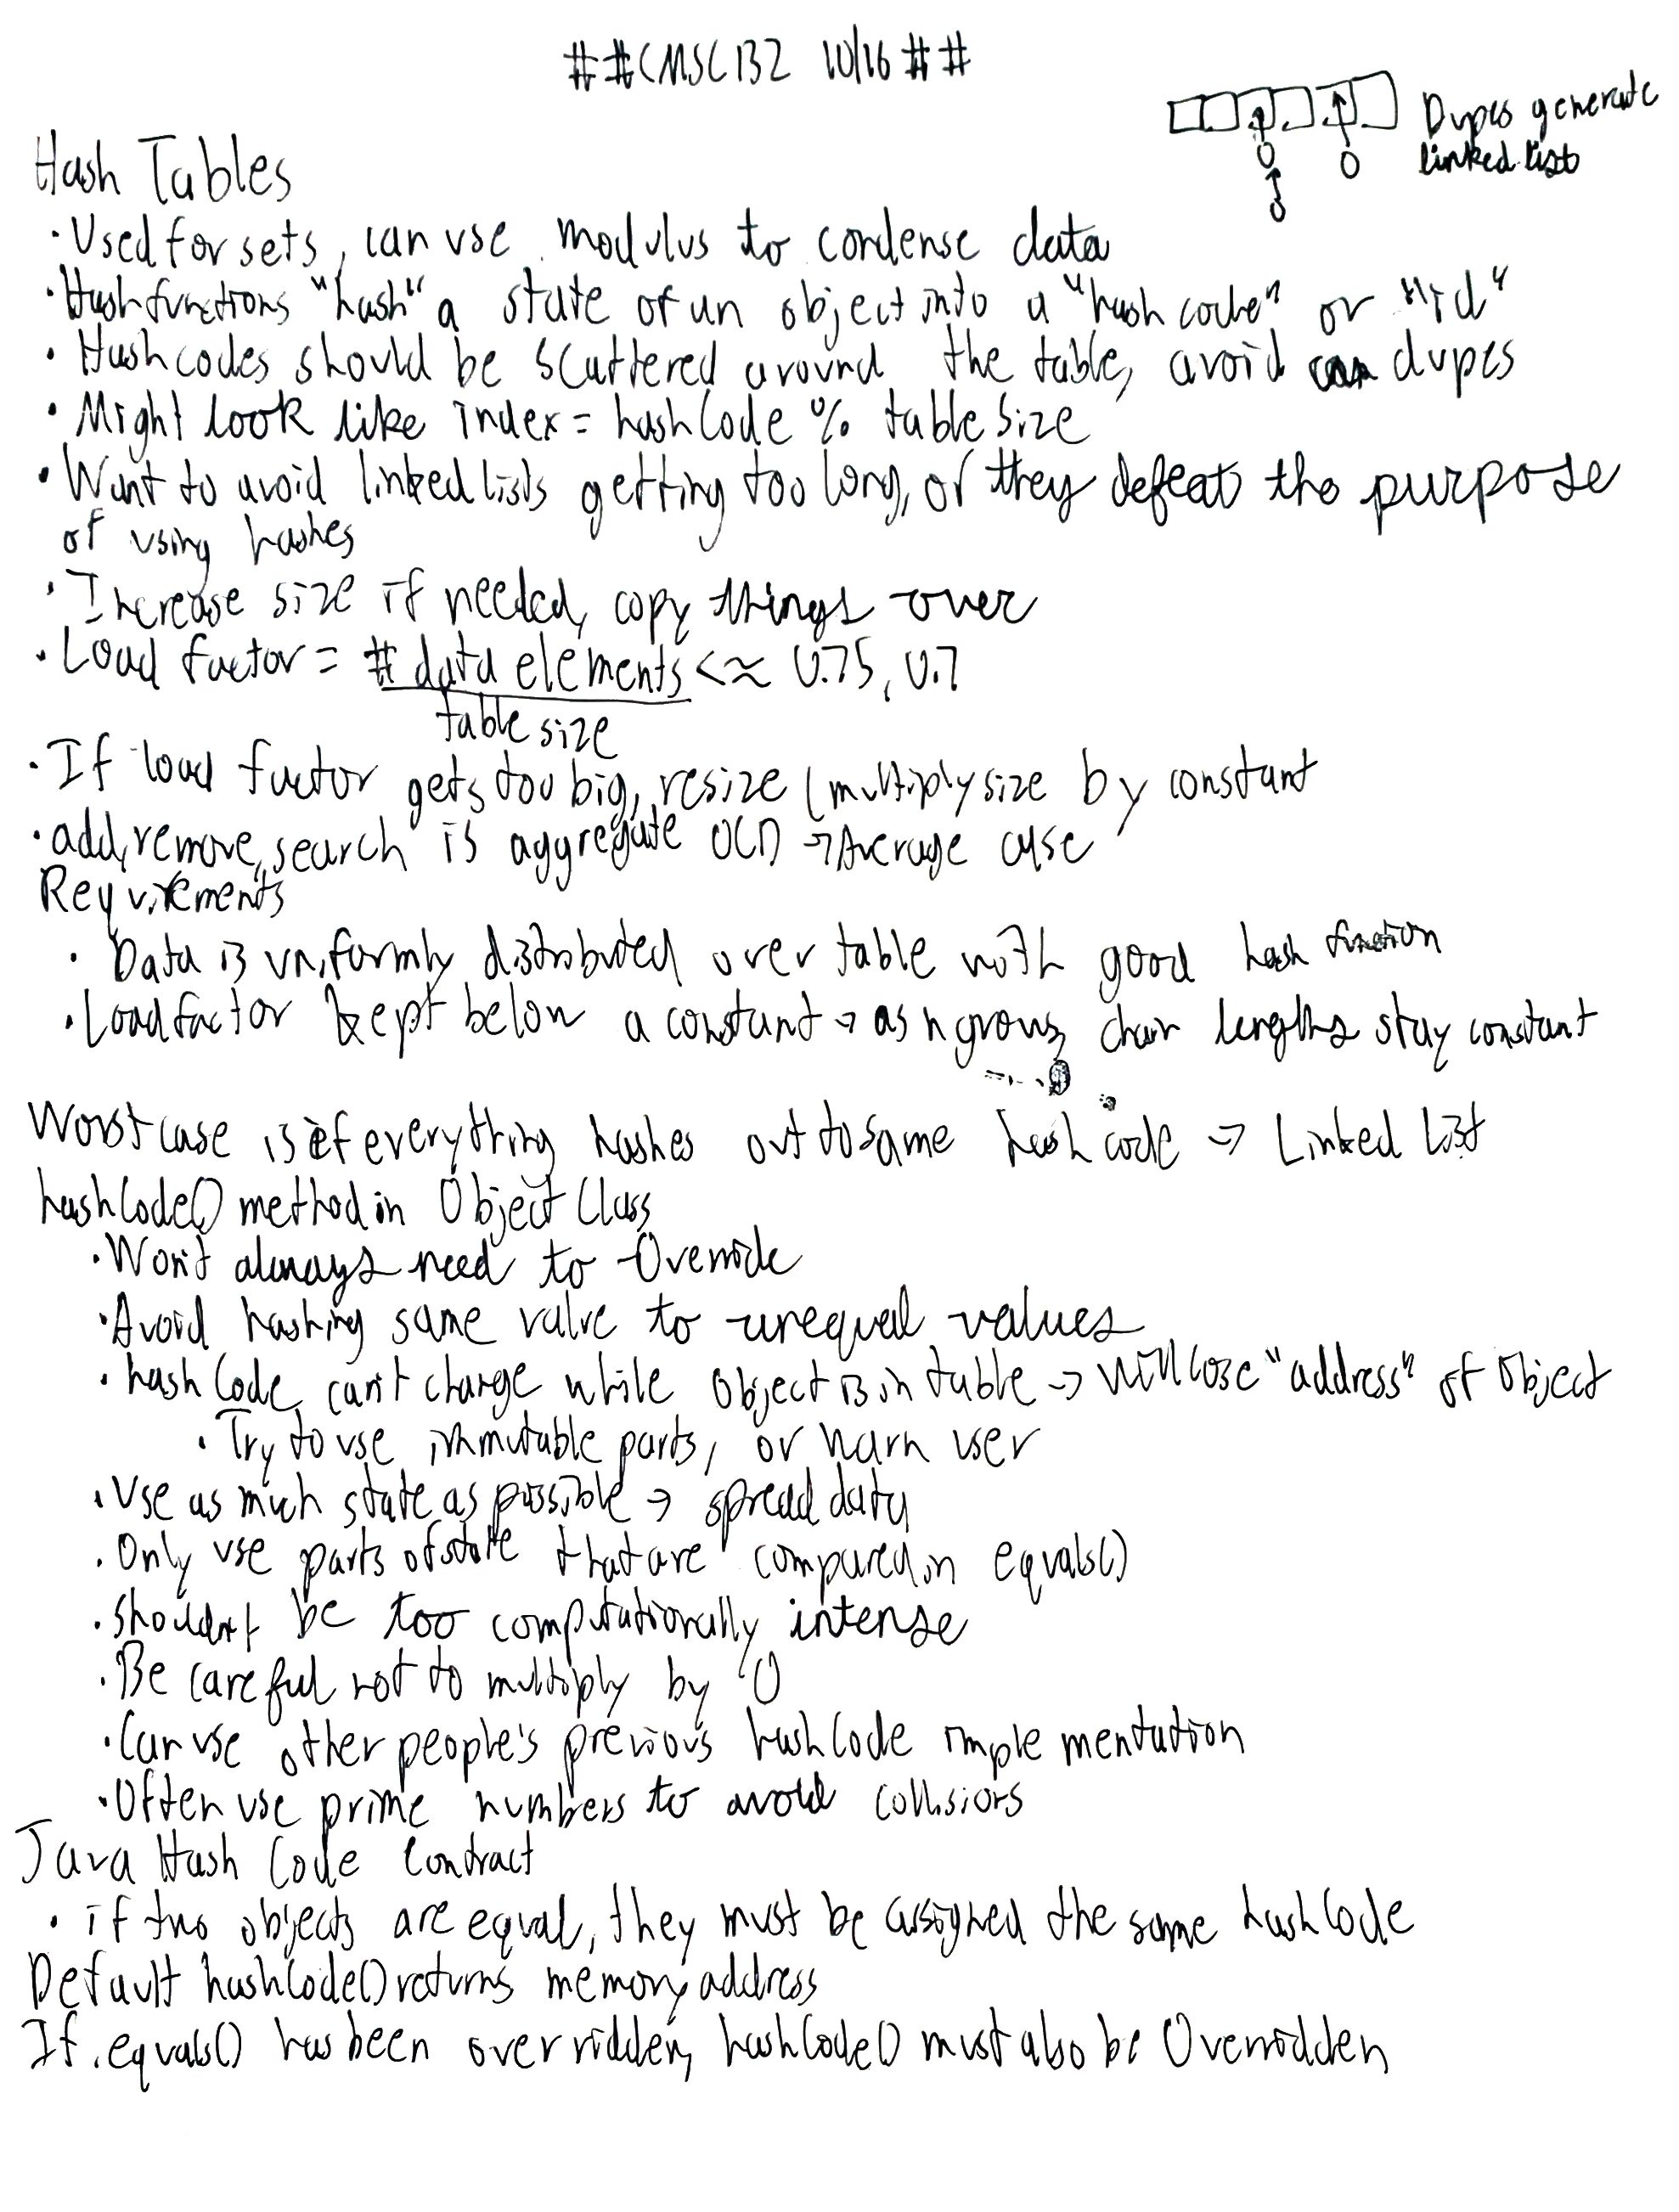 ##CMSC132 10/16##
Dupes generate
linked list
Hash Tables
·Used for sets, can use modulus to condense data
·Hash functions "hash" a state of an object into a "hash code" or "id"
·Hash codes should be scattered around the table, avoid dupes
·Might look like index = hashCode % table size
·Want to avoid linked lists getting too long, or they defeat the purpose
of using hashes
·Increase size if needed, copy things over
·Load factor = # data elements <≈ 0.75, 0.7
table size
·If load factor gets too big, resize (multiply size by constant
·add, remove, search is aggregate O(1) → Average case
Requirements
·Data is uniformly distributed over table with good hash function
·Load factor kept below a constant → as n grows, chain lengths stay constant
Worst case is if everything hashes out to same hash code → Linked List
hashCode() method in Object Class
·Won't always need to Override
·Avoid hashing same value to unequal values
·hashCode can't change while object is in table → will lose "address" of object
·Try to use immutable parts, or warn user
·Use as much state as possible → spread data
·Only use parts of state that are compared in equals()
·Shouldn't be too computationally intense
·Be careful not to multiply by 0
·Can use other people's previous hashCode implementation
·Often use prime numbers to avoid collisions
Java Hash Code Contract
·if two objects are equal, they must be assigned the same hashCode
Default hashCode() returns memory address
If .equals() has been overridden, hashCode() must also be Overridden